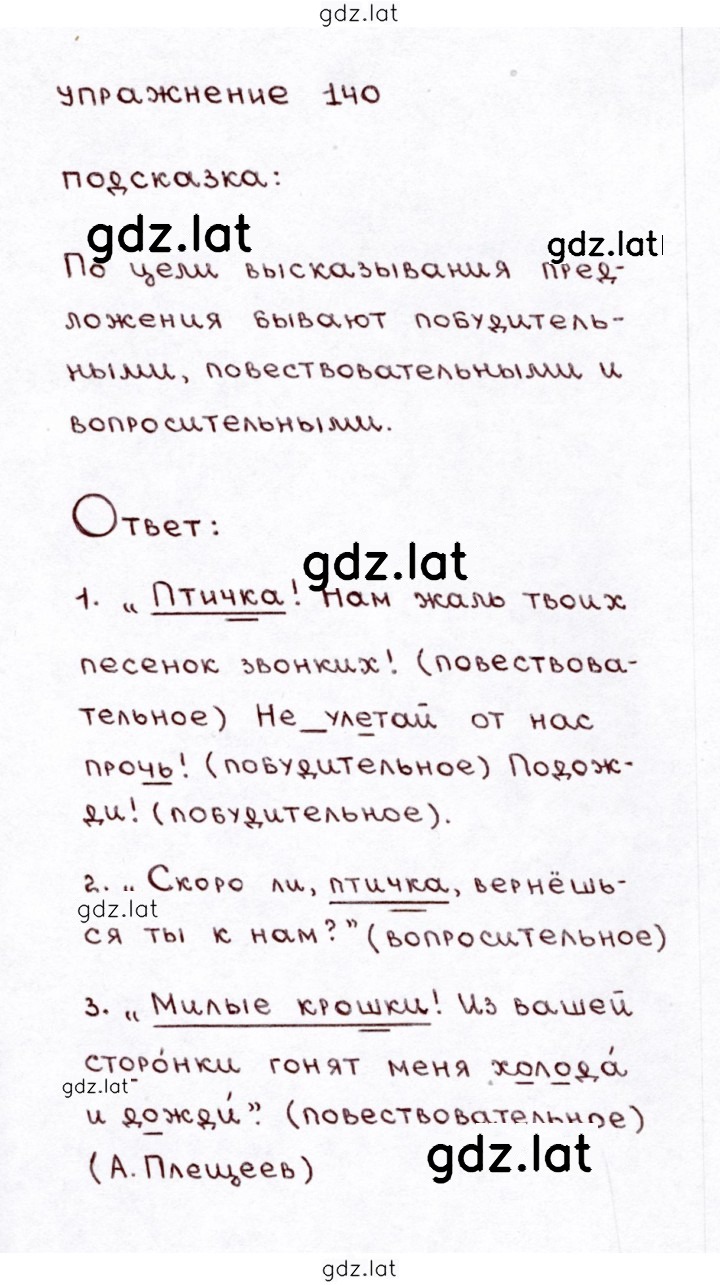 gdz.lat
упражнение 140
подсказка:
gdz.lat gdz.lat
По цели высказывания пред-
ложения бывают побудитель-
ными, повествовательными и
вопросительными.
Ответ:
gdz.lat
1. „ Птичка! Нам жаль твоих
песенок звонких! (повествова-
тельное) Не_улетай от нас
прочь! (побудительное) Подож-
ди! (побудительное).
2. „ Скоро ли, птичка, вернёшь-
gdz.lat
ся ты к нам?” (вопросительное)
3. „ Милые крошки! Из вашей
сторо́нки гонят меня холода́
gdz.lat
и дожди́”. (повествовательное)
gdz.lat
(А. Плещеев)
gdz.lat